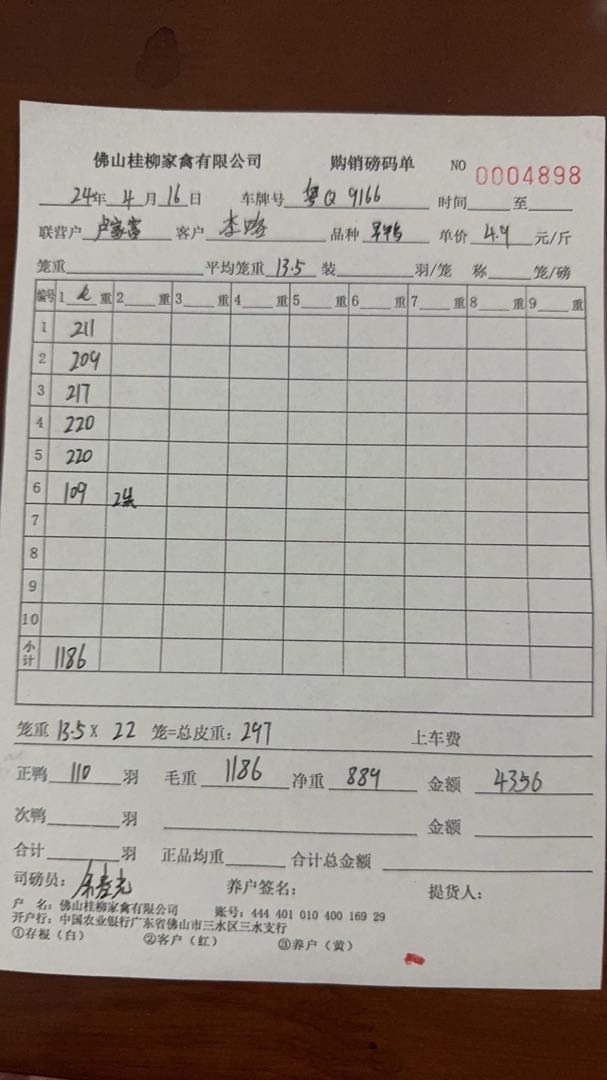 佛山桂柳家禽有限公司 购销磅码单 NO 0004898
24年 4月16日 车牌号 粤Q 9166 时间 至
联营户 卢家富 客户 李路 品种 单价 4.9 元/斤
笼重 平均笼重 13.5 装 羽/笼 称 笼/磅
编号 1 重 2 重 3 重 4 重 5 重 6 重 7 重 8 重 9 重
1 211
2 209
3 217
4 220
5 220
6 109 2笼
7
8
9
10
小计 1186
笼重 13.5 X 22 笼=总皮重: 297 上车费
正鸭 110 羽 毛重 1186 净重 889 金额 4356
次鸭 羽 金额
合计 羽 正品均重 合计总金额
司磅员: 养户签名: 提货人:
户 名: 佛山桂柳家禽有限公司 账号: 444 401 010 400 169 29
开户行: 中国农业银行广东省佛山市三水区三水支行
①存根（白） ②客户（红） ③养户（黄）